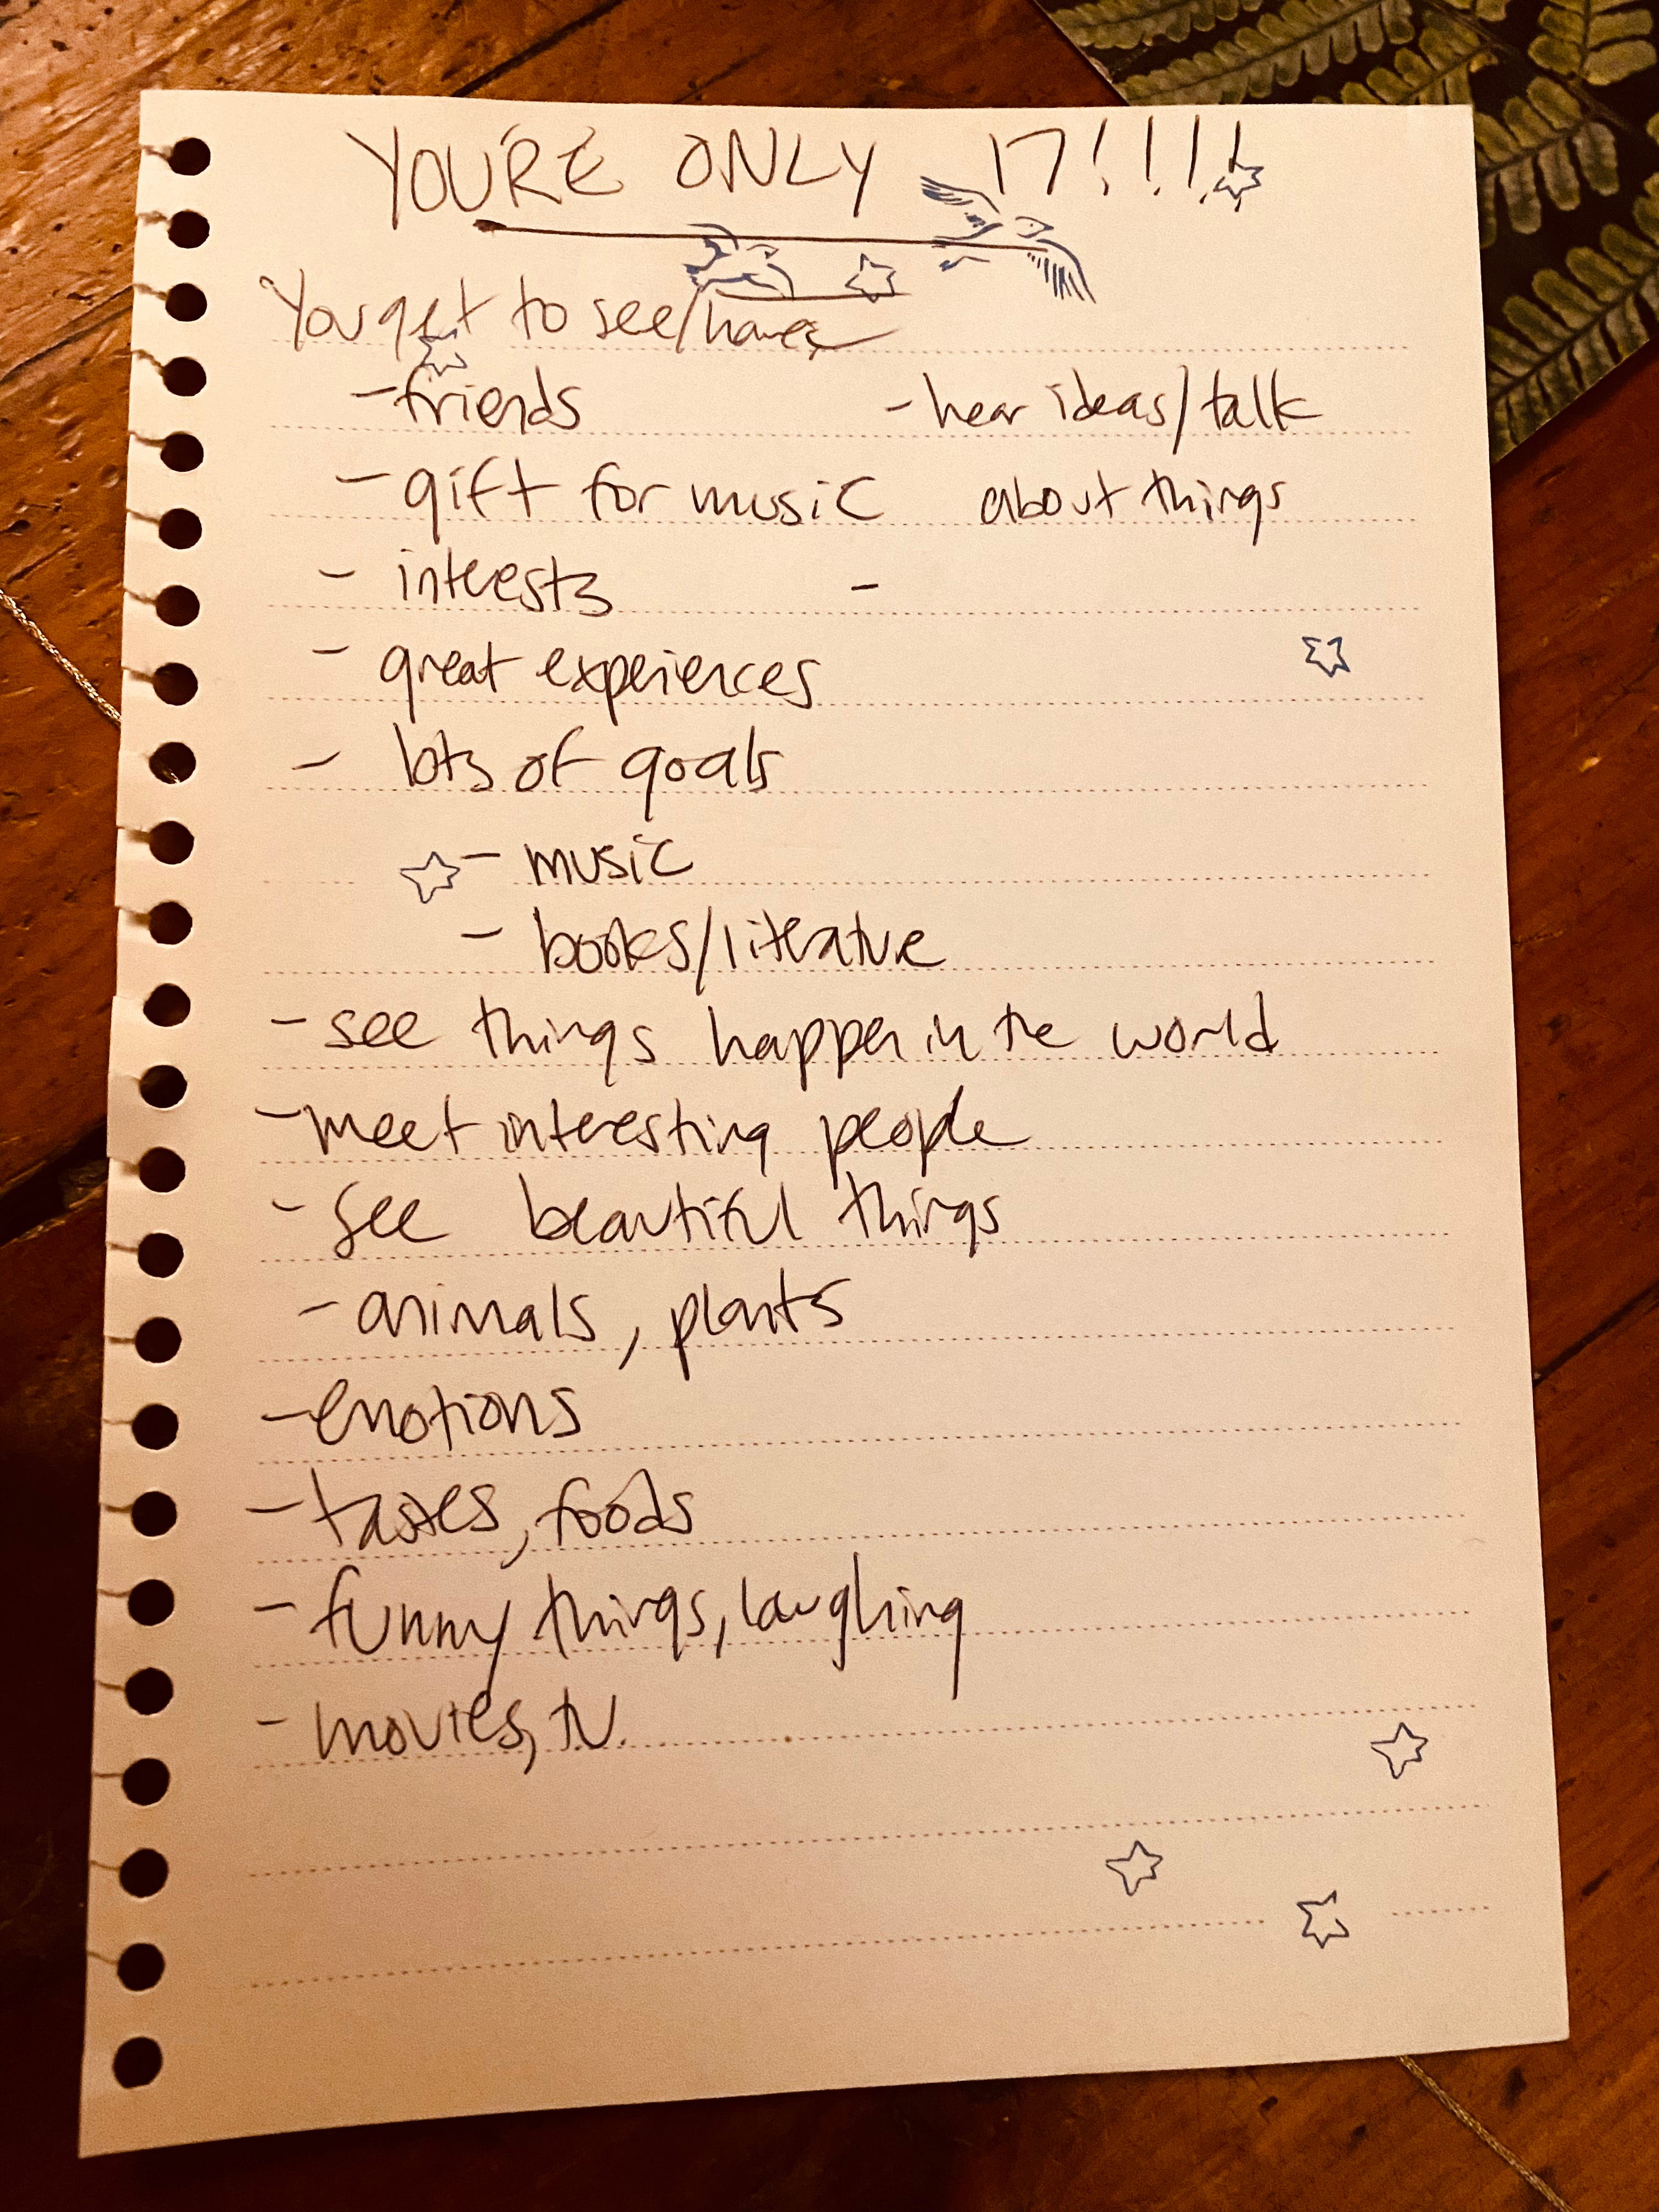 YOU'RE ONLY 17!!!!
You get to see/have
- friends
- gift for music
- interests
- great experiences
- lots of goals
- music
- books/literature
- see things happen in the world
- meet interesting people
- see beautiful things
- animals, plants
- emotions
- tastes, foods
- funny things, laughing
- movies, tv.
- hear ideas/talk
about things
-